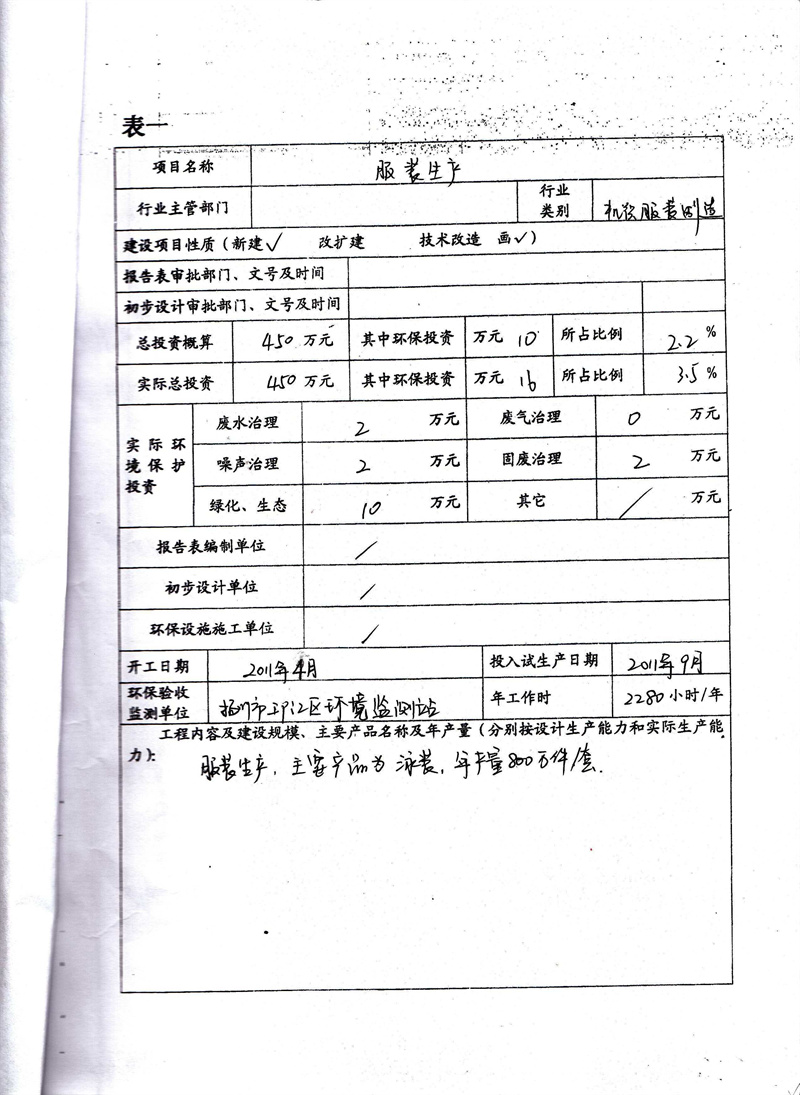 表一
项目名称 服装生产
行业主管部门 行业类别 机织服装制造
建设项目性质（新建√ 改扩建 技术改造 画√）
报告表审批部门、文号及时间
初步设计审批部门、文号及时间
总投资概算 450 万元 其中环保投资 万元 10 所占比例 2.2 %
实际总投资 450 万元 其中环保投资 万元 16 所占比例 3.5 %
实际环境保护投资 废水治理 2 万元 废气治理 0 万元
噪声治理 2 万元 固废治理 2 万元
绿化、生态 10 万元 其它 / 万元
报告表编制单位 /
初步设计单位 /
环保设施施工单位 /
开工日期 2011年4月 投入试生产日期 2011年9月
环保验收监测单位 扬州市邗江区环境监测站 年工作时 2280小时/年
工程内容及建设规模、主要产品名称及年产量（分别按设计生产能力和实际生产能
力）：
服装生产，主要产品为泳装，年产量800万件/套.